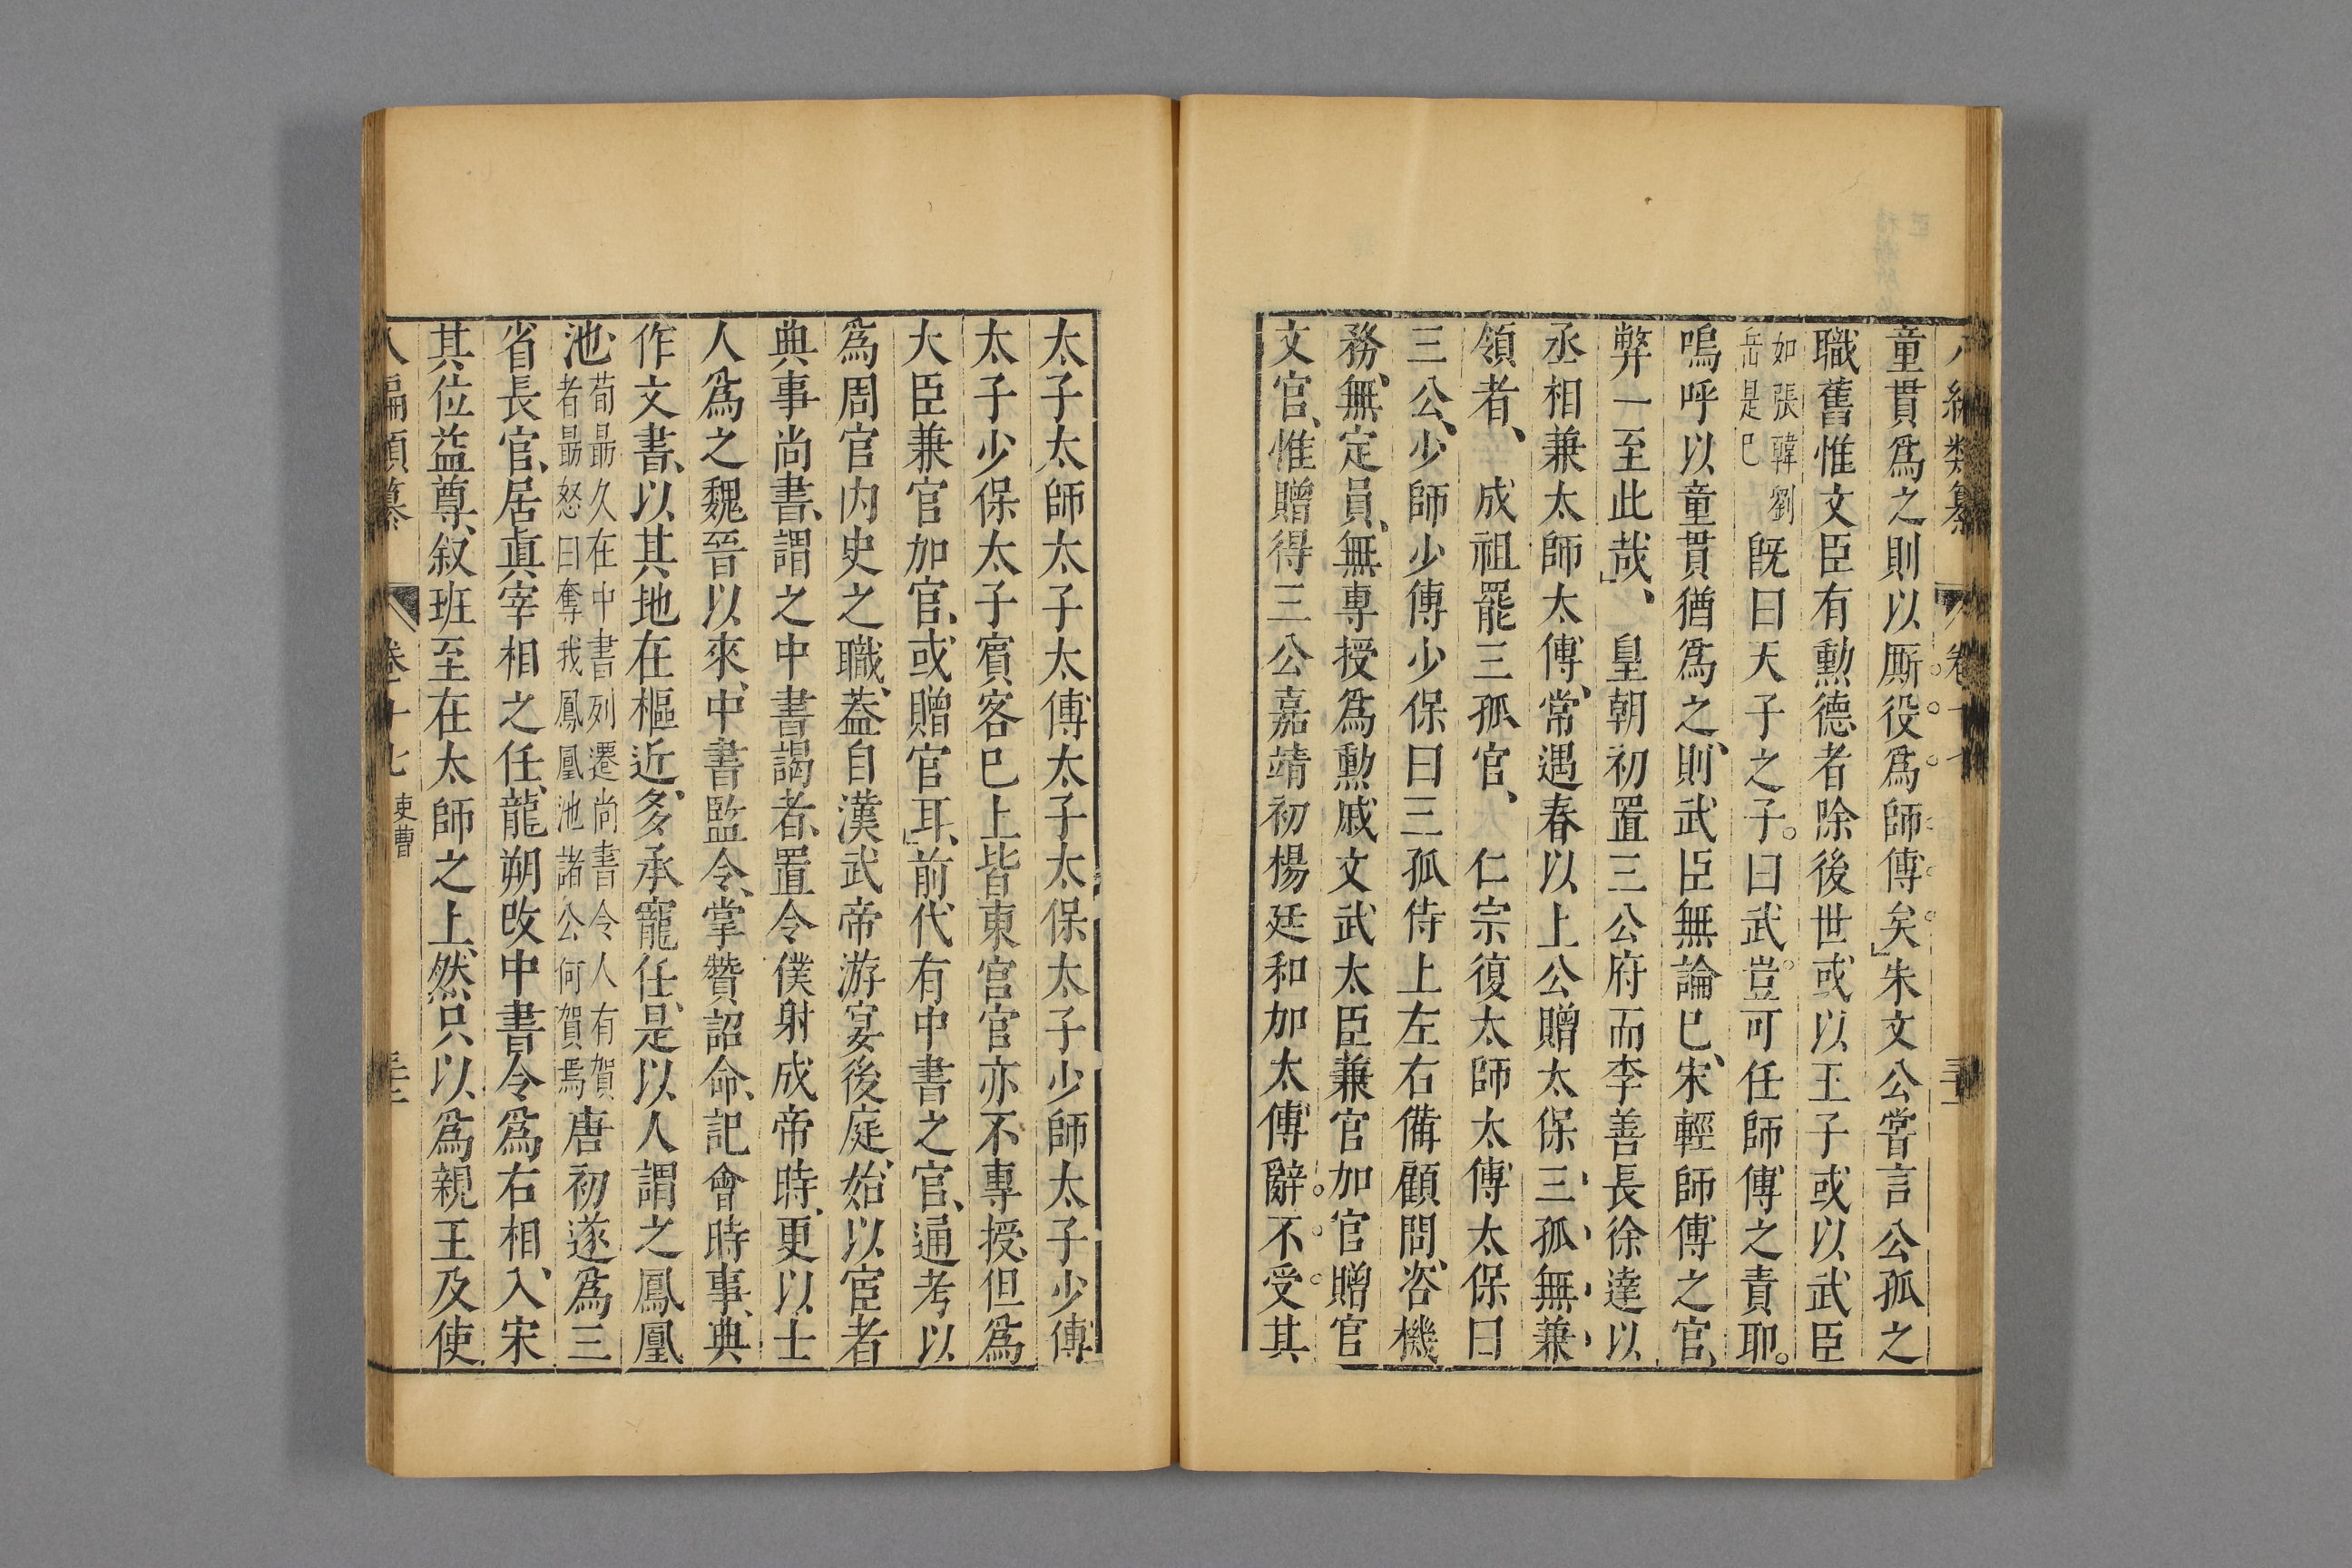 童貫爲之則以厮役爲師傅矣朱文公嘗言公孤之
職舊惟文臣有勲德者除後世或以王子或以武臣
如張韓劉
岳是巳
旣曰天子之子曰武豈可任師傅之責耶
嗚呼以童貫猶爲之則武臣無論巳宋輕師傅之官
弊一至此哉 皇朝初置三公府而李善長徐達以
丞相兼太師太傅常遇春以上公贈太保三孤無兼
領者 成祖罷三孤官 仁宗復太師太傅太保曰
三公少師少傅少保曰三孤侍上左右備顧問咨機
務無定員無專授爲勲戚文武太臣兼官加官贈官
文官惟贈得三公嘉靖初楊廷和加太傅辭不受其
太子太師太子太傅太子太保太子少師太子少傅
太子少保太子賔客巳上皆東宫官亦不專授但爲
大臣兼官加官或贈官耳前代有中書之官通考以
爲周官内史之職葢自漢武帝游宴後庭始以宦者
典事尚書謂之中書謁者置令僕射成帝時更以士
人爲之魏晉以來中書監令掌贊詔命記會時事典
作文書以其地在樞近多承寵任是以人謂之鳳凰
池
荀朂久在中書列遷尚書令人有賀
者朂怒曰奪我鳳凰池諸公何賀焉
唐初遂爲三
省長官居眞宰相之任龍朔改中書令爲右相入宋
其位益尊叙班至在太師之上然只以爲親王及使
卷十七 吏曹